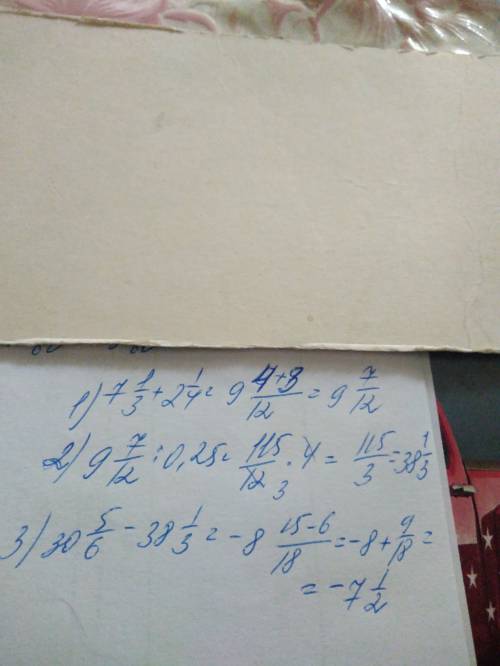 1) 7 1/3 + 2 1/4 = 9 4+3/12 = 9 7/12
2) 9 7/12 : 0,25 = 115/12 3 · 4 = 115/3 = 38 1/3
3) 30 5/6 - 38 1/3 = -8 15-6/18 = -8 + 9/18 =
= -7 1/2